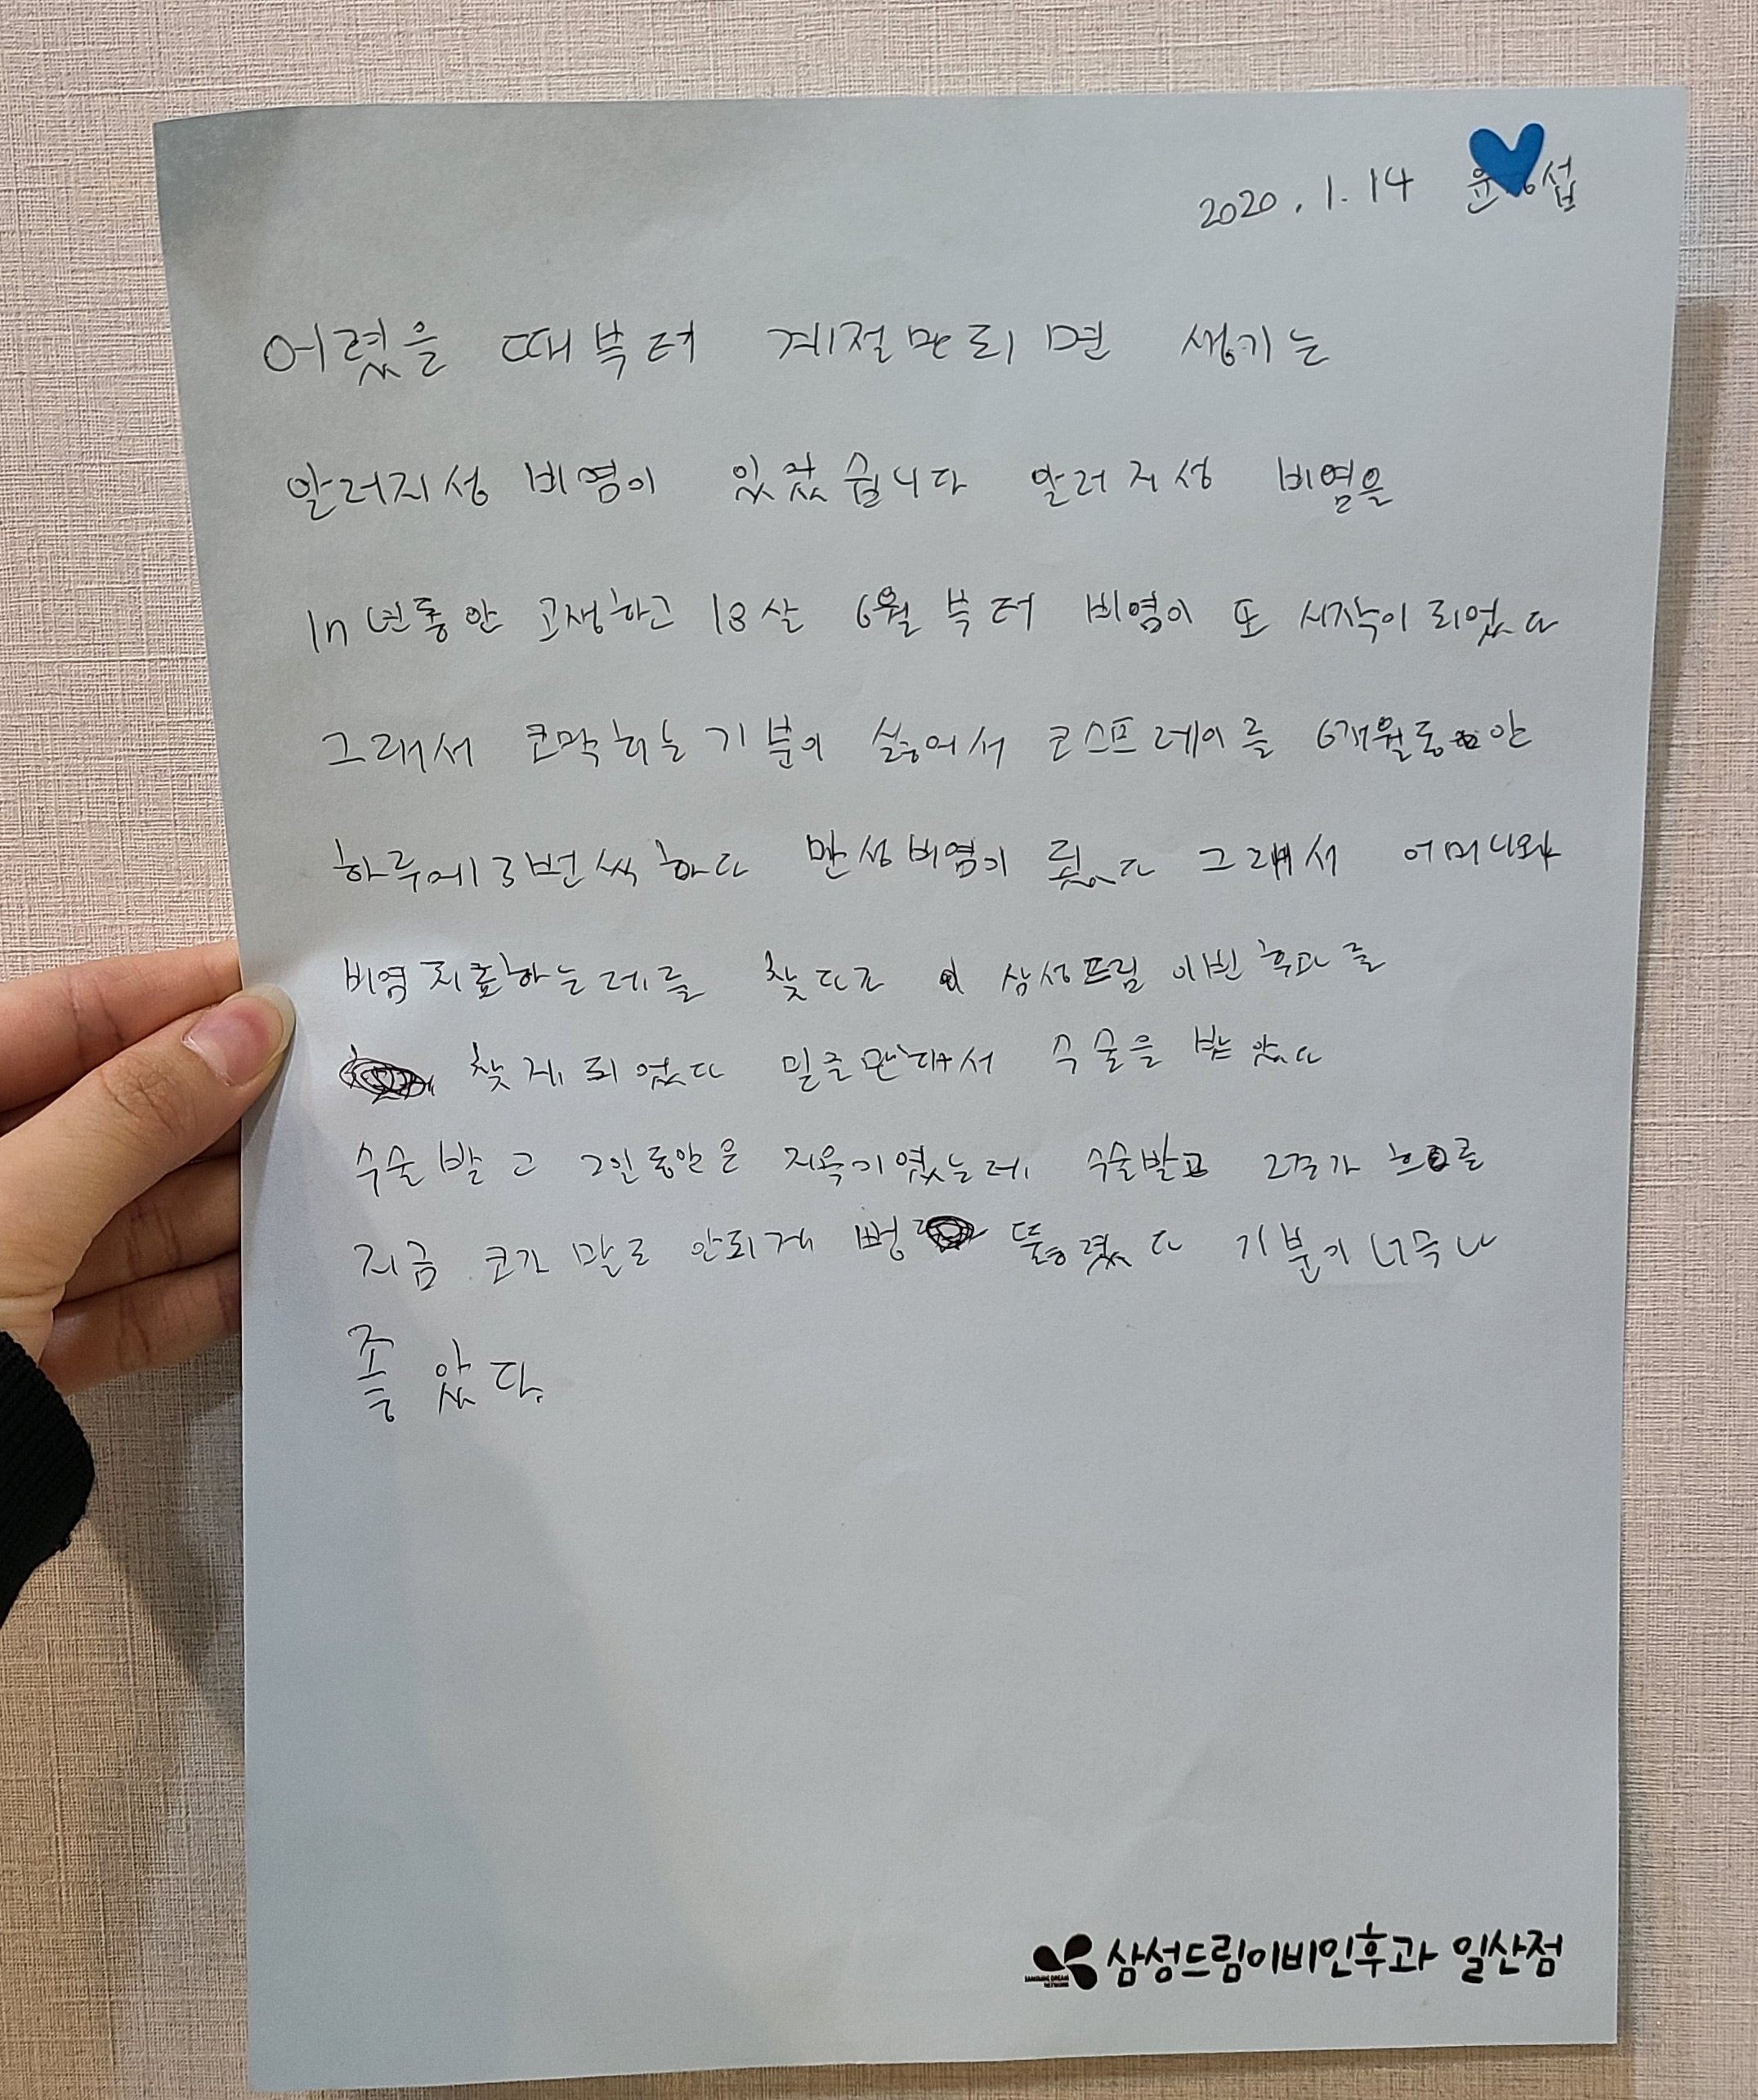 2020. 1. 14 윤 섭
어렸을 때부터 계절만 되면 생기는
알러지성 비염이 있었습니다 알러지성 비염을
1n년동안 고생하고 18살 6월부터 비염이 또 시작이 되었다
그래서 코막히는 기분이 싫어서 코스프레이를 6개월동안
하루에 3번씩 하다 만성비염이 됬다 그래서 어머니와
비염치료하는데를 찾다가 삼성드림 이빈후과를
찾게 되었다 믿음만해서 수술을 받았다
수술 받고 2일동안은 지옥이였는데 수술받고 2주가 흐르고
지금 코가 말로 안되게 뻥 뚫렸다 기분이 너무나
좋았다.
삼성드림이비인후과 일산점
SAMSUNG DREAM
NETWORK